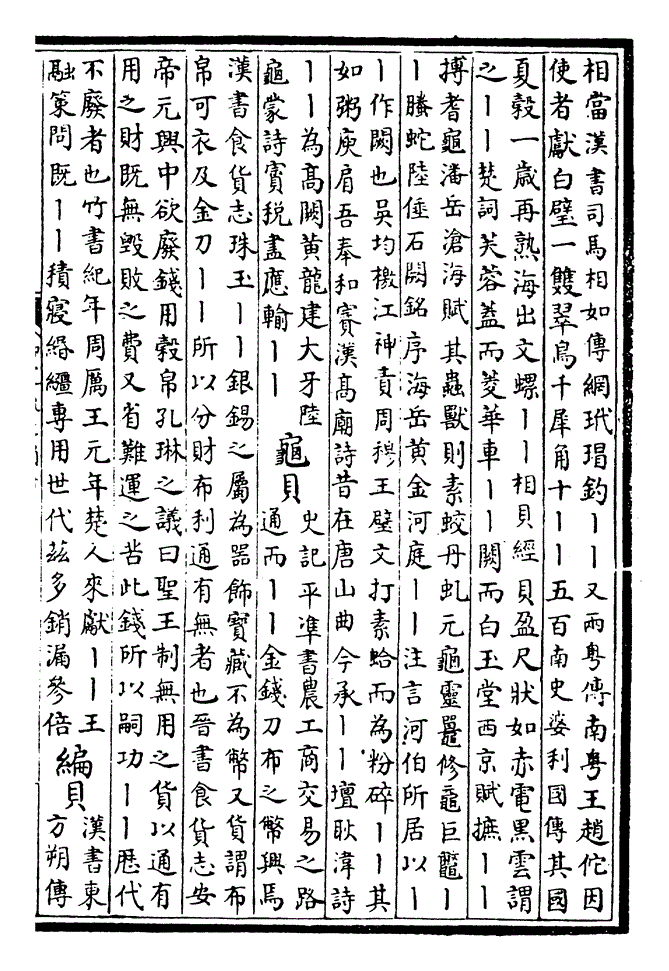 相當漢書司馬相如傳網玳瑁釣丨丨又兩粤傳南粤王趙佗因
使者獻白璧一雙翠鳥千犀角十丨丨五百南史婆利國傳其國
夏穀一歲再熟海出文螺丨丨相貝經貝盈尺狀如赤電黑雲謂
之丨丨楚詞芙蓉蓋而菱華車丨丨闕而白玉堂西京賦摭丨丨
搏耆龜潘岳滄海賦其蟲獸則素蛟丹虬元龜靈鼉修黿巨鼈丨
丨螣蛇陸倕石闕銘序海岳黄金河庭丨丨注言河伯所居以丨
丨作闕也吳均檄江神責周穆王璧文打素蛤而為粉碎丨丨其
如粥庾肩吾奉和賽漢高廟詩昔在唐山曲今承丨丨壇耿湋詩
丨丨為高闕黄龍建大牙陸
龜蒙詩賨税盡應輸丨丨
龜貝
史記平準書農工商交易之路
通而丨丨金錢刀布之幣興焉
漢書食貨志珠玉丨丨銀錫之屬為器飾寶藏不為幣又貨謂布
帛可衣及金刀丨丨所以分財布利通有無者也晉書食貨志安
帝元興中欲廢錢用穀帛孔琳之議曰聖王制無用之貨以通有
用之財既無毀敗之費又省難運之苦此錢所以嗣功丨丨歷代
不廢者也竹書紀年周厲王元年楚人來獻丨丨王
融策問既丨丨積寢緡繈專用世代兹多銷漏參倍
編貝
漢書東
方朔傳